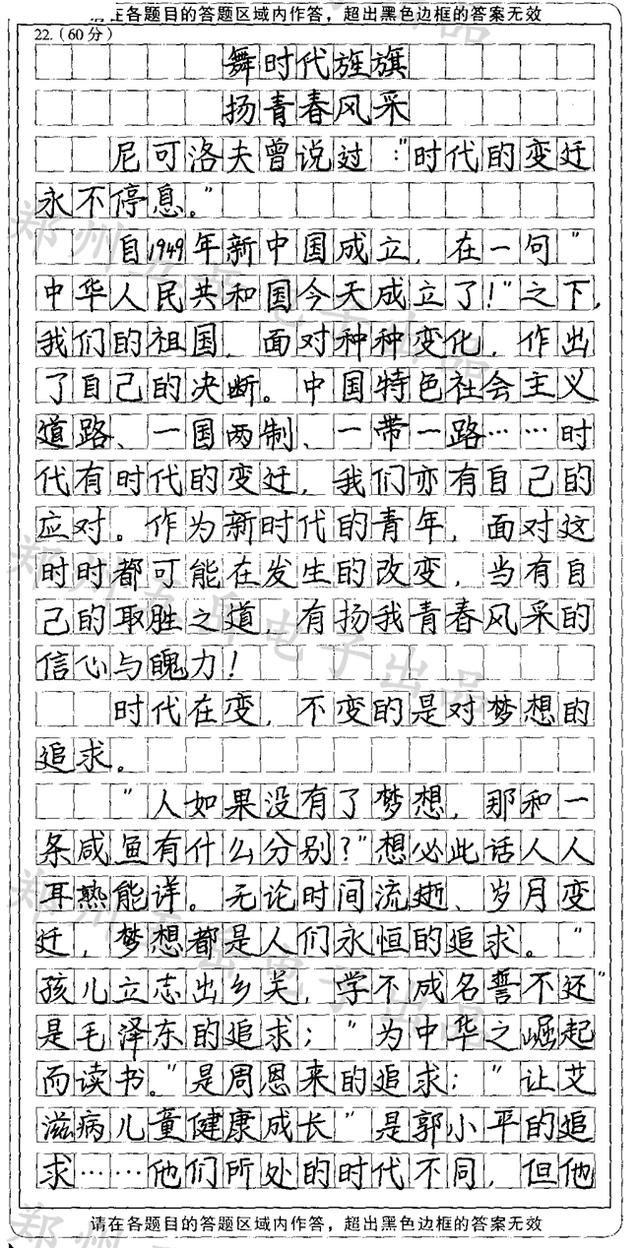 请在各题目的答题区域内作答，超出黑色边框的答案无效
22.（60分）
舞时代旌旗
扬青春风采
尼可洛夫曾说过："时代的变迁
永不停息。"
自1949年新中国成立，在一句"
中华人民共和国今天成立了！"之下，
我们的祖国，面对种种变化，作出
了自己的决断。中国特色社会主义
道路、一国两制、一带一路……时
代有时代的变迁，我们亦有自己的
应对。作为新时代的青年，面对这
时时都可能在发生的改变，当有自
己的取胜之道，有扬我青春风采的
信心与魄力！
时代在变，不变的是对梦想的
追求。
"人如果没有了梦想，那和一
条咸鱼有什么分别？"想必此话人人
耳熟能详。无论时间流逝、岁月变
迁，梦想都是人们永恒的追求。"
孩儿立志出乡关，学不成名誓不还"
是毛泽东的追求；"为中华之崛起
而读书。"是周恩来的追求；"让艾
滋病儿童健康成长"是郭小平的追
求……他们所处的时代不同，但他
请在各题目的答题区域内作答，超出黑色边框的答案无效